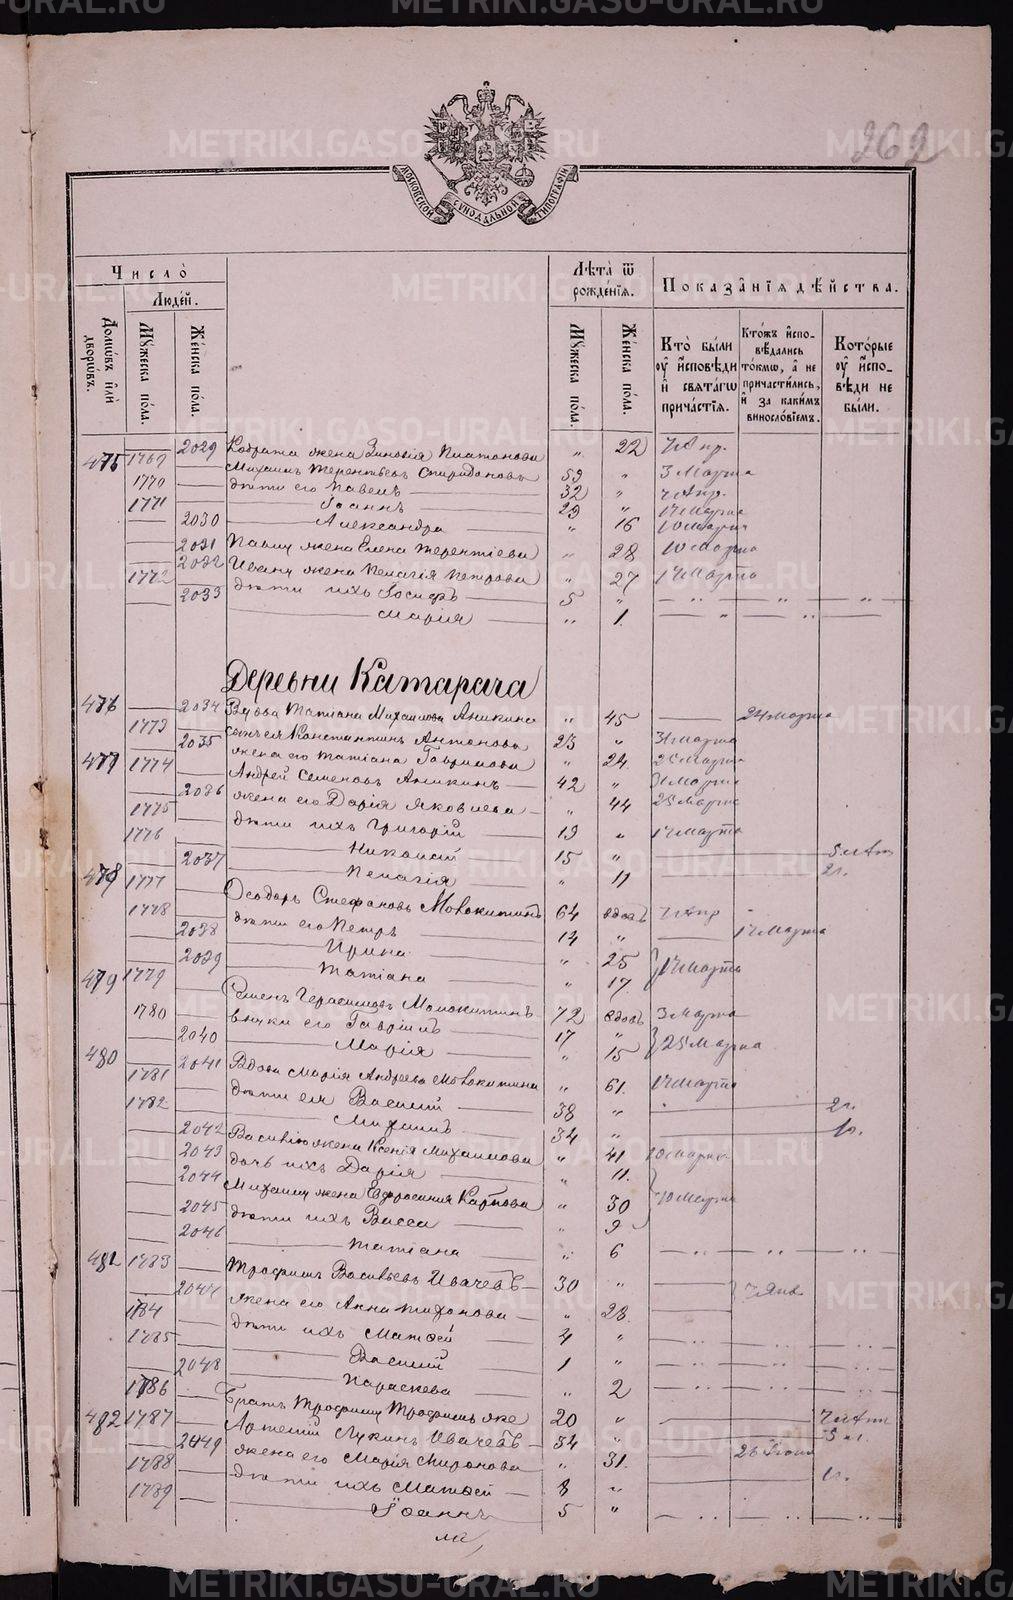 262
МОСКОВСКОЙ СѴНОДАЛЬНОЙ ТИПОГРАФІИ
Число̀
Люде́й.
Домѡ́въ и҆лѝ дворѡ́въ.
Мꙋ́жеска по́ла.
Же́нска по́ла.
Лѣ̑та ѿ рожде́нїѧ.
Мꙋ́жеска по́ла.
Же́нска по́ла.
Показа̑нїѧ дѣ́йства.
Кто̀ бы́ли ᲂу҆ и҆́сповѣди и҆ свѧта́гѡ прича́стїѧ.
Кто́жъ и҆спо-вѣ́дались то́кмѡ, а҆ не причасти́лись, и҆ за каки́мъ виносло́вїемъ.
Кото́рые ᲂу҆ и҆́спо-вѣди не бы́ли.
2029 Кодрата жена Зиновія Платонова " 22 7 Апр.
475 1769 Михаилъ Терентьевъ Спиридоновъ 59 " 3 Марта
1770 дѣти его Павелъ 32 " 7 Апр.
1771 Іоаннъ 29 " 17 Марта
2030 Александра " 16 10 Марта
2031 Павлу жена Елена Терентіева " 28 10 Марта
2032 Ивану жена Пелагія Петрова " 27 17 Марта
1772 дѣти ихъ Іосифъ 5 "
2033 Марія " 1.
Деревни Катарача
476 2034 Вдова Татіана Михаилова Аникина " 45 24 Марта
1773 сынъ ея Константинъ Антоновъ 23 " 31 Марта
2035 жена его Татіана Гаврилова " 24. 25 Марта
477 1774 Андрей Семеновъ Аникинъ 42 " 31 Марта
2036 жена его Дарія Яковлева " 44 25 Марта
1775 дѣти ихъ Григорій 19 " 17 Марта
1776 Николай 15 " 5 лѣт
2037 Пелагія " 11 2 г.
478 1777 Ѳеодоръ Стефановъ Молокитинъ 64 вдовъ 7 Апр
1778 дѣти его Петръ 14 " 17 Марта
2038 Ирина " 25 17 Марта
2039 Татіана " 17.
479 1779 Семенъ Герасимовъ Молокитинъ 72 вдовъ 3 Марта
1780 внуки его Гавріилъ 17 " 25 Марта
2040 Марія " 15
480 2041 Вдова Марія Андреева Молокитина " 61. 17 Марта
1781 дѣти ея Василій 38 " 2 г.
1782 Михаилъ 34 " 1 г.
2042 Василію жена Ксенія Михаилова " 41 10 Марта
2043 дочь ихъ Дарія " 11.
2044 Михаилу жена Евфросинія Карпова " 30 10 Марта
2045 дѣти ихъ Васса " 9
2046 Татіана " 6
481 1783 Трофимъ Васильевъ Ивачевъ 30 " 7 Янв
2047 жена его Анна Тихонова " 28.
1784 дѣти ихъ Матѳей 4 "
1785 Василій 1 "
2048 Параскева " 2
1786 Братъ Трофиму Трофимъ же 20 " 7 лѣт
482 1787 Артемій Лукинъ Ивачевъ 34 "
2049 жена его Марія Миронова " 31.
1788 дѣти ихъ Матѳей 8 " 1 г.
1789 Іоаннъ 5 "
METRIKI.GASO-URAL.RU